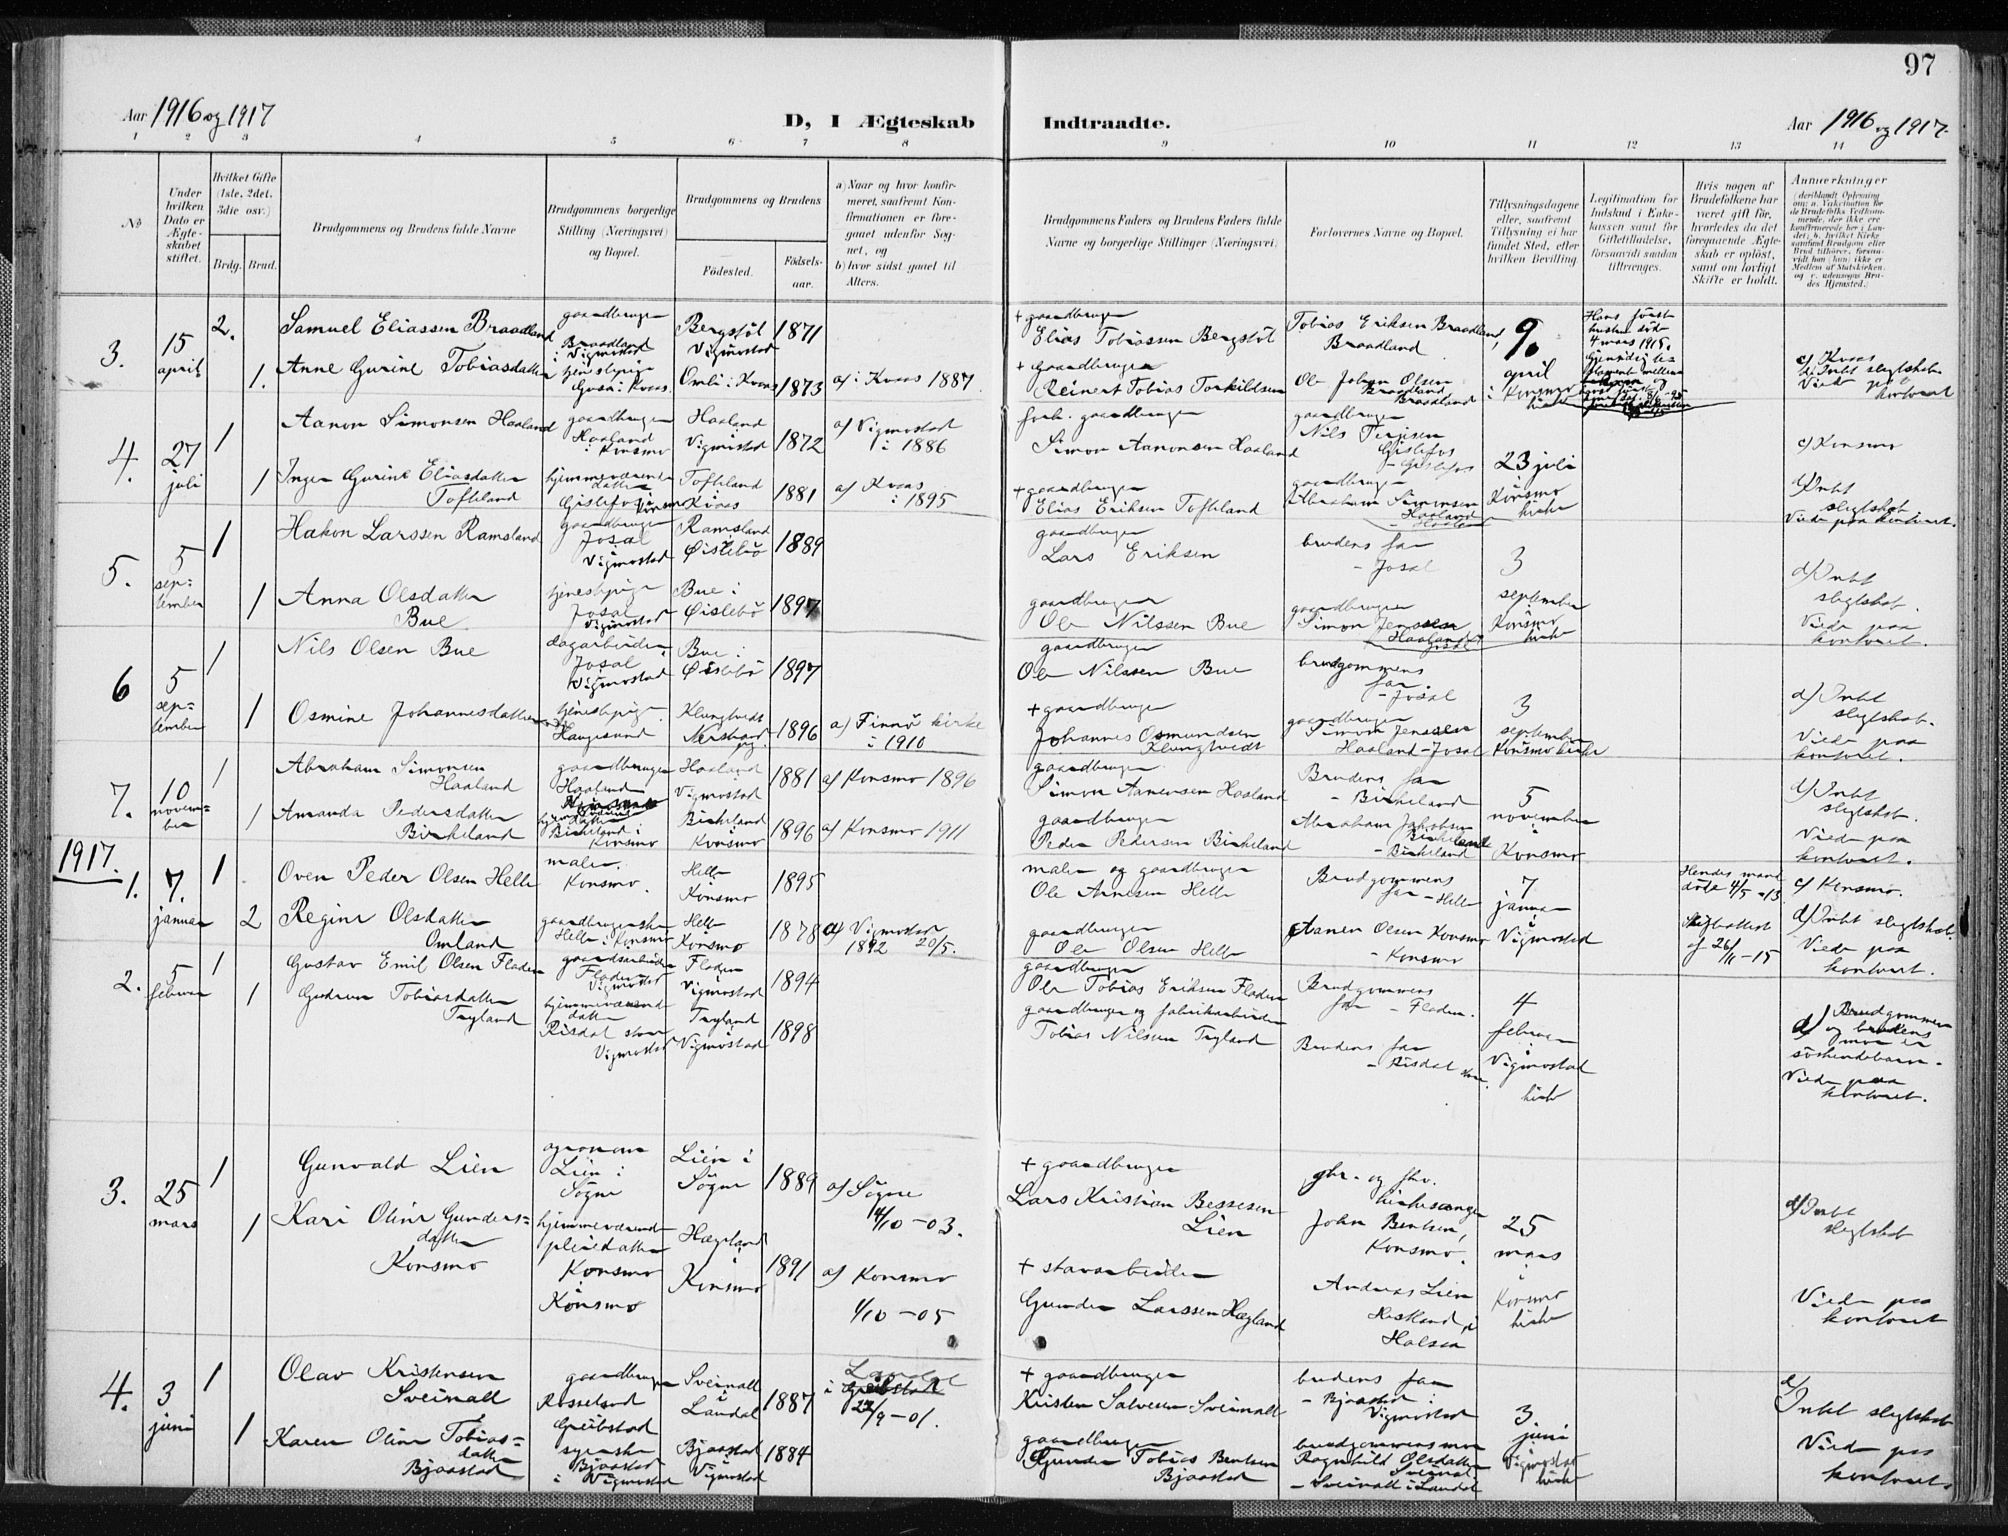 97
Aar 1916 og 1917
D, I Ægteskab Indtraadte.
Aar 1916 og 1917.
1 2 3 4 5 6 7 8 9 10 11 12 13 14
No
Under hvilken Dato er Ægteskabet stiftet.
Hvilket Gifte (1ste, 2det, 3die osv.)
Brdg. Brud.
Brudgommens og Brudens fulde Navne
Brudgommens borgerlige Stilling (Næringsvei) og Bopæl.
Brudgommens og Brudens
Födested.
Födsels-aar.
a) Naar og hvor konfirmeret, saafremt Konfirmationen er foregaaet udenfor Sognet, og
b) hvor sidst gaaet til Alters.
Brudgommens Faders og Brudens Faders fulde Navne og borgerlige Stillinger (Næringsvei)
Forlovernes Navne og Bopæl.
Tillysningsdagene eller, saafremt Tillysning ei har fundet Sted, efter hvilken Bevilling.
Legitimation for Indskud i Enkekassen samt for Giftetilladelse, forsaavidt saadan tiltrænges.
Hvis nogen af Brudefolkene har været gift för, hvorledes da det foregaaende Ægteskab er oplöst, samt om lovligt Skifte er holdt.
Anmerkninger
3. 15 april
2. Samuel Eliassen Braadland
gaardbruger Braadland i Vigmostad
Bergstöl Vigmostad 1871
+ gaardbruger Elias Tobiassen Bergstöl
Tobias Eriksen Braadland, Braadland
9. april i Konsmo kirke
1. Anne Gurine Tobiasdatter
tjenestepige
Omli i Kvaas 1873
a) i Kvaas 1887
+ gaardbruger
Reinert Tobias Torkildsen
Ole Johan Olsen Braadland Braadland
c) Kvaas
d) Intet slegtskab.
Viede paa kontoret
4. 27 juli
1 Aanon Simonsen Haaland
gaardbruger Haaland i Konsmo
Haaland Vigmostad 1872
a) Vigmostad i 1886
forh. gaardbruger
Simon Aanonsen Haaland
gaardbruger Nils Terjesen Gislefos - Gislefos
23 juli i Konsmo kirke
c) Konsmo
1 Inger Gurine Eliasdatter Tofteland
hjemmeværende datter Gislefos i Konsmo
Tofteland i Kvaas 1881
a) Kvaas i 1895
+ gaardbruger
Elias Eriksen Tofteland
gaardbruger Abraham Simonsen Haaland - Haaland
d) Intet slegtskab.
Viede paa kontoret.
5. 5 september
1 Hakon Larssen Ramsland
gaardbruger Josal Vigmostad
Ramsland Øislebö 1889
gaardbruger Lars Eriksen
brudens far - Josal
3 september i Konsmo kirke
1 Anna Olsdatter Bue
tjenestepige Josal Vigmostad
Bue i Øislebö 1897
gaardbruger Ole Nilssen Bue
gaardbruger Simon Jenssen Haaland - Josal
d) Intet slegtskab.
Viede paa kontoret.
6 5 september
1 Nils Olsen Bue
dagarbeider Josal Vigmostad
Bue i Øislebö 1897
gaardbruger Ole Nilssen Bue
brudgommens far. - Josal
3 september Konsmo kirke
1 Osmine Johannesdatter
tjenestepige Haugesund
Klungtvedt Nerstrand 1896
a) Finnö kirke i 1910
+ gaardbruger
Johannes Osmundsen Klungtvedt
gaardbruger Simon Jenssen Haaland - Josal
d) Intet slegtskab.
Viede paa kontoret.
7. 10 november
1 Abraham Simonsen Haaland
gaardbruger Haaland
Haaland Vigmostad 1881
a) Konsmo 1896
gaardbruger
Simon Aanensen Haaland
Brudens far - Birkeland
5 november i Konsmo
1 Amanda Pedersdatter Birkeland
hjemmeværende datter Birkeland i Konsmo
Birkeland i Konsmo 1896
a) Konsmo 1911
gaardbruger
Peder Pedersen Birkeland
Abraham Jakobsen Birkeland - Birkeland
d) Intet slegtskab.
Viede paa kontoret.
1917.
1. 7. januar
1 Oven Peder Olsen Helle
maler. Konsmo.
Helle Konsmo 1895
maler og gaardbruger
Ole Arnesen Helle
Brudgommens far - Helle
7 januar i Vigmostad
Hendes mand döde 4/5 - 13
c) Konsmo.
2 Regine Olsdatter Omland
gaardbrugerske Helle i Konsmo
Helle Konsmo 1878
a) Vigmostad 1892 20/5.
gaardbruger Ole Olsen Helle
Aanen Olsen Konsmo - Konsmo
af 26/11 - 15
d) Intet slegtskab.
Viede paa kontoret.
2. 5 februar
1 Gustav Emil Olsen Fladen
gaardsarbeider Fladen Vigmostad
Fladen Vigmostad 1894
gaardbruger
Ole Tobias Eriksen Fladen
Brudgommens far - Fladen.
4 februar i Vigmostad kirke
1 Gudrun Tobiasdatter Tryland
hjemmeværende datter Risdal store Vigmostad
Tryland i Vigmostad 1898
gaardbruger og fabrikarbeider
Tobias Nilsen Tryland
Brudens far - Risdal store.
d) Brudgommen og brudens mor er söskendebarn.
Viede paa kontoret.
3. 25 mars
1 Gunvald Lien
agronom Lien i Sögne
Lien i Sögne 1889
a) Sögne 4/10 - 03.
+ gaardbruger
Lars Kristian Bessesen Lien
gbr. og fhv. kirkesanger John Bentsen, Konsmo.
25 mars i Konsmo kirke
1 Kari Oline Gundersdatter Konsmo
hjemmeværende pleiedatter Konsmo i Konsmo
Hægeland i Konsmo 1891
a) Konsmo 1/10 - 05
+ stavarbeider
Gunder Larssen Hægland
Andreas Lien i Halsaa
d) Intet slegtskab
Viede paa kontoret
4. 3 juni
1 Olav Kristensen Sveinall
gaardbruger Greibstad
Sveinall i Laudal 1887
i Laudal 22/9 - 01.
+ gaardbruger
Kristen Salvesen Sveinall
brudens far - Bjaastad i Vigmostad
3 juni Vigmostad kirke
1 Karen Oline Tobiasdatter Bjaastad
syerske Bjaastad i Vigmostad
Bjaastad i Vigmostad 1884
gaardbruger
Gunder Tobias Bentsen Bjaastad
brudgommens mor Ragnhild Olsdatter Sveinal - Sveinall i Laudal
d) Intet slegtskab
Viede paa kontoret.